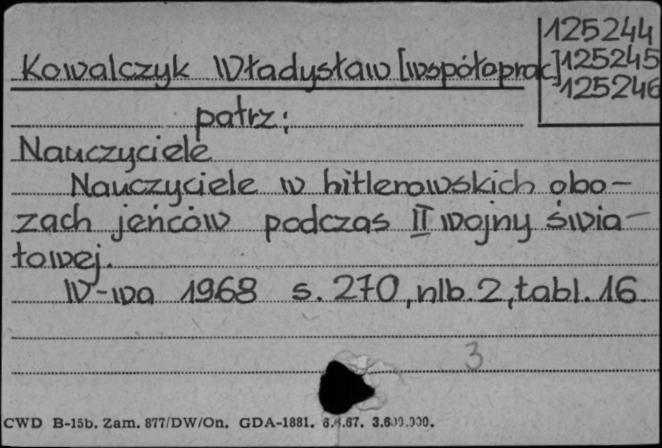 125244
Kowalczyk Władysław [współoprac] 125245
125246
patrz:
Nauczyciele
Nauczyciele w hitlerowskich obo-
zach jeńców podczas II wojny świa-
towej.
W-wa 1968 s. 270, nlb. 2, tabl. 16
3
CWD B-15b. Zam. 877/DW/On. GDA-1881.